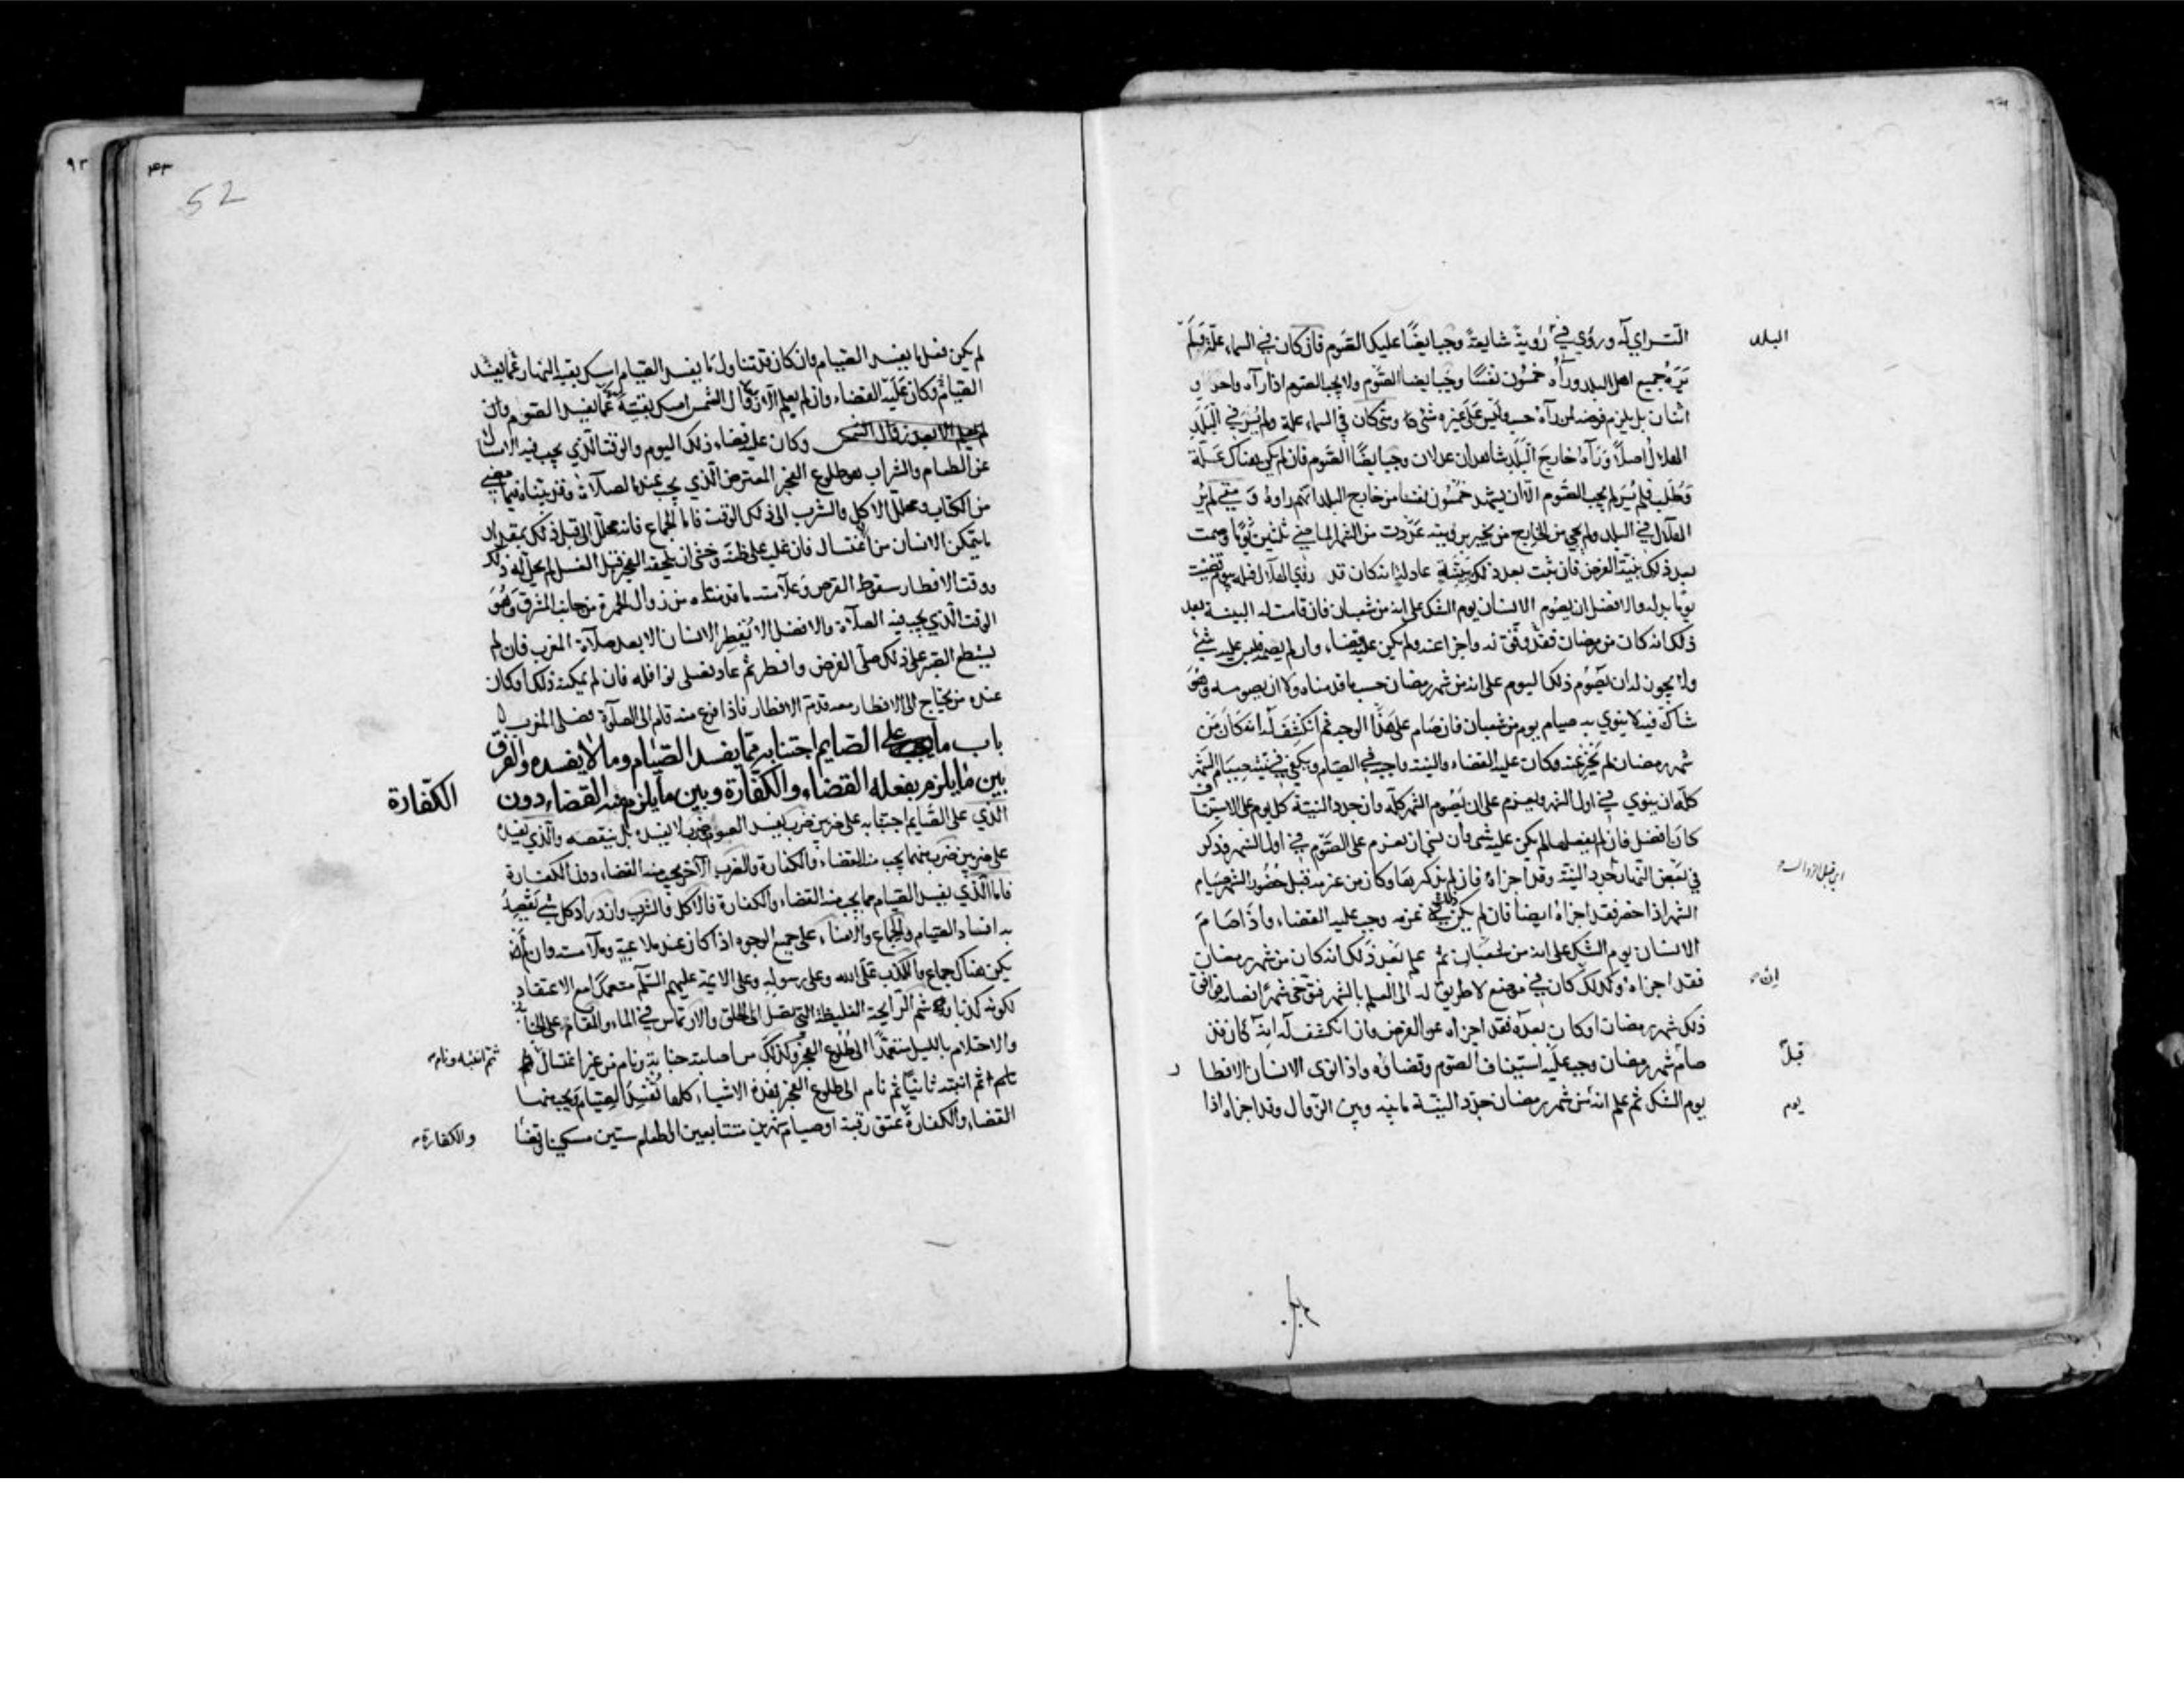 البلد
التراي له ورؤي في رؤية شايعة وجب ايضًا عليك الصوم فان كان في السماء علة فلم
يره جميع اهل البلد ورآه خمسون نفسًا وجب ايضا الصوم ولا يجب الصوم اذا رآه واحد و
اثنان بل يلزم فرضه لمن رآه حسب وليس على غيره شئ ومتى كان في السماء علة ولم يُرَ في البلد
الهلال اصلًا ورآه خارج البلد شاهدان عدلان وجب ايضًا الصوم فان لم يكن هناك علة
وطلب فلم يُرَ لم يجب الصوم الا ان يشهد خمسون نفسا من خارج البلد انهم راوه ومتى لم يُر
الهلال في البلد ولم يجئ من الخارج من يخبر برؤيته عددت من الشهر الماضي ثلثين يومًا وصمت
بعد ذلك بنية الفرض فان ثبت بعد ذلك ببينة عادلة انه كان قد رؤي الهلال قبله بيوم قضيت
يومًا بدله والافضل ان يصوم الانسان يوم الشك على انه من شعبان فان قامت له البينة بعد
ذلك انه كان من رمضان فقد وفق له واجزا عنه ولم يكن عليه قضاء وان لم يصمه فليس عليه شئ
ولا يجوز له ان يصوم ذلك اليوم على انه من شهر رمضان حسب ما قدمناه ولا ان يصومه وهو
شاك فيه لا ينوي به صيام يوم من شعبان فان صام على هذا الوجه ثم انكشف له انه كان من
شهر رمضان لم يُجزِ عنه وكان عليه القضاء والنية واجبة في الصيام ويكفي في نية صيام الشهر
كله ان ينوي في اول الشهر ويعزم على ان يصوم الشهر كله وان جدد النية كل يوم على الاستيناف
كان افضل فان لم يفعلها لم يكن عليه شئ وان نسي ان يعزم على الصوم في اول الشهر وذكر
في بعض النهار جدد النية وقد اجزاه فان لم يذكرها وكان من عزمه قبل حضور الشهر صيام
الشهر اذا حضر فقد اجزاه ايضا فان لم يكن ذلك في عزمه وجب عليه القضاء واذا صام
الانسان يوم الشك على انه من شعبان ثم علم بعد ذلك انه كان من شهر رمضان
ان
فقد اجزاه وكذلك كان في موضع لا طريق له الى العلم بالشهر فتوخى شهرًا فصامه فوافق
ذلك شهر رمضان او كان بعده فقد اجزاه عن الفرض وان انكشف له انه كان قد
قبل
صام شهر رمضان وجب عليه استيناف الصوم وقضاؤه واذا نوى الانسان الافطار
يوم
يوم الشك ثم علم انه من شهر رمضان جدد النية ما بينه وبين الزوال وقد اجزاه اذا
52
لم يكن فعل ما يفسد الصيام وان كان قد تناول ما يفسد الصيام امسك بقية النهار عما يفسد
الصيام وكان عليه القضاء وان لم يعلم الا بعد زوال الشمس امسك بقيته عما يفسد الصوم وان
لم يعلم الا بعد زوال الشمس وكان عليه قضاء ذلك اليوم والوقت الذي يجب فيه الامساك
عن الطعام والشراب هو طلوع الفجر المعترض الذي يجب عنده الصلاة وقد بيناه فيما مضى
من الكتاب ومحلل الاكل والشرب الى ذلك الوقت فاما الجماع فانه محلل الى قبل ذلك بمقدار
ما يتمكن الانسان من الاغتسال فان غلب على ظنه وخشي ان يلحقه الفجر قبل الغسل لم يحل له ذلك
ووقت الافطار سقوط القرص وعلامته ما قدمناه من زوال الحمرة من جانب المشرق وهو
الوقت الذي يجب فيه الصلاة والافضل الا يُفطِر الانسان الا بعد صلاة المغرب فان لم
يستطع الصبر على ذلك صلى الفرض وافطر ثم عاد فصلى نوافله فان لم يمكنه ذلك او كان
عنده من يحتاج الى الافطار معه قدم الافطار فاذا فرغ منه قام الى الصلاة فصلى المغرب
باب ما يجب على الصايم اجتنابه مما يفسد الصيام وما لا يفسده والفرق
بين ما يلزم بفعله القضاء والكفارة وبين ما يلزم منه القضاء دون الكفارة
الذي على الصايم اجتنابه على ضربين ضرب يفسد الصوم وضرب لا يفسده بل ينقصه والذي يفسده
على ضربين ضرب منهما يجب منه القضاء والكفارة والضرب الآخر يجب منه القضاء دون الكفارة
فاما الذي يفسد الصيام مما يجب منه القضاء والكفارة فالاكل والشرب وازدراد كل شئ يقصد
به افساد الصيام والجماع والامناء على جميع الوجوه اذا كان عند ملاعبة وملامسة وان لم
يكن هناك جماع والكذب على الله وعلى رسوله وعلى الايمة عليهم السلم متعمدًا مع الاعتقاد
لكونه كذبا وشم الرايحة الغليظة التي تصل الى الحلق والارتماس في الماء والمقام على الجنابة
والاحتلام بالليل متعمدًا الى طلوع الفجر وكذلك من اصابته جنابة ونام من غير اغتسال
ثم انتبه ونام
ثم انتبه ثانيًا ثم نام الى طلوع الفجر فهذه الاشياء كلها تُفسد الصيام ويجب منها
القضاء والكفارة عتق رقبة او صيام شهرين متتابعين او اطعام ستين مسكينا وقضاء
والكفارة